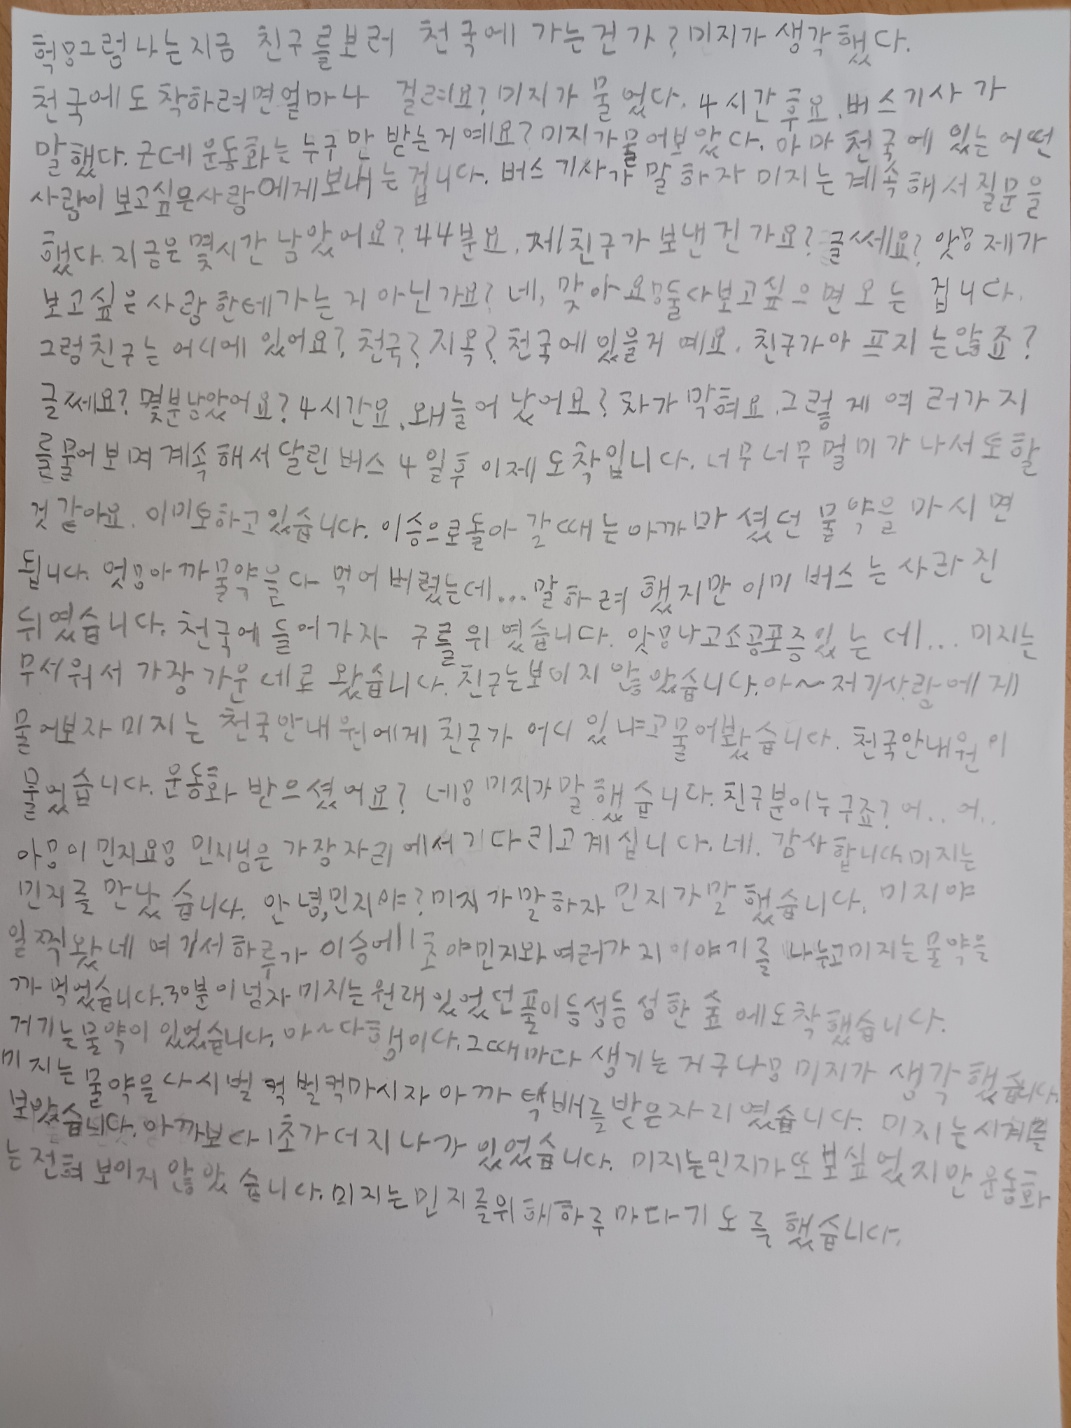 헉!!그럼 나는 지금 친구를보러 천국에 가는건가? 미지가 생각했다.
천국에 도착하려면얼마나 걸려요? 미지가 물었다. 4시간후요. 버스기사가
말했다. 근데 운동화는 누구만 받는거예요? 미지가물어보았다. 아마 천국에 있는 어떤
사람이 보고싶은사람에게보내는겁니다. 버스기사가 말하자 미지는계속해서질문을
했다. 지금은 몇시간 남았어요? 44분요. 제친구가 보낸건가요? 글쎄요? 앗!! 제가
보고싶은사람한테가는지 아닌가요? 네, 맞아요!!둘다보고싶으면오는 겁니다.
그럼친구는 어디에 있어요? 천국? 지옥? 천국에있을거예요. 친구가아프지는않죠?
글쎄요? 몇분남았어요? 4시간요. 왜늘어났어요? 차가 막혀요. 그렇게 여러가지
를물어보며계속해서달린버스 4일후 이제 도착입니다. 너무너무멀미가나서토할
것 같아요. 이미토하고있습니다. 이승으로돌아갈때는아까마셨던 물약을마시면
됩니다. 엇!!아까물약을다 먹어버렸는데...말하려했지만이미버스는사라진
뒤였습니다. 천국에들어가자 구름위였습니다. 앗!!나고소공포증있는데... 미지는
무서워서 가장가운데로왔습니다. 친구는보이지않았습니다. 아~저기사람에게
물어보자 미지는 천국안내원에게친구가 어디있냐고물어봤습니다. 천국안내원이
물었습니다. 운동화 받으셨어요? 네!! 미지가말했습니다. 친구분이누구죠? 어..어..
아!!이민지요!! 민지님은 가장자리에서기다리고계십니다. 네. 감사합니다미지는
민지를만났습니다. 안녕,민지야? 미지가말하자 민지가말했습니다. 미지야
일찍왔네 여기서하루가 이승에11초야민지와여러가지이야기를나누고미지는물약을
까먹었습니다.30분이넘자미지는원래있었던풀이등성등성한숲에도착했습니다.
거기는물약이있었습니다. 아~다행이다. 그때마다생기는거구나!! 미지가 생각했습니다.
미지는물약을다시벌컥벌컥마시자아까택배를받은자리였습니다. 미지는시계를
보았습니다. 아까보다1초가더지나가있었습니다. 미지는민지가또보싶었지만운동화
는전혀보이지않았습니다. 미지는민지를위해하루마다기도를했습니다.